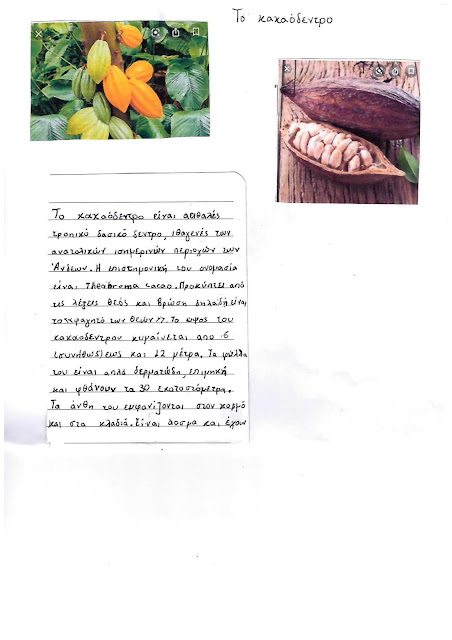 Το κακαόδεντρο
Το κακαόδεντρο είναι αειθαλές
τροπικό δασικό δεντρο, ιθαγενές των
ανατολικών ισημερινών περιοχών των
Άνδεων. Η επιστημονική του ονομασία
είναι Theobroma cacao. Προκύπτει από
τις λέξεις θεός και βρώση δηλαδή είναι
το <<φαγητό των θεών>>. Το υψος του
κακαοδεντρου κυμαίνεται απο 6
(συνήθως) εως και 12 μέτρα. Τα φύλλα
του είναι απλά δερματώδη, επιμήκη
και φθάνουν τα 30 εκατοστόμετρα.
Τα άνθη του εμφανίζονται στον κορμό
και στα κλαδιά. Είναι άοσμα και έχουν